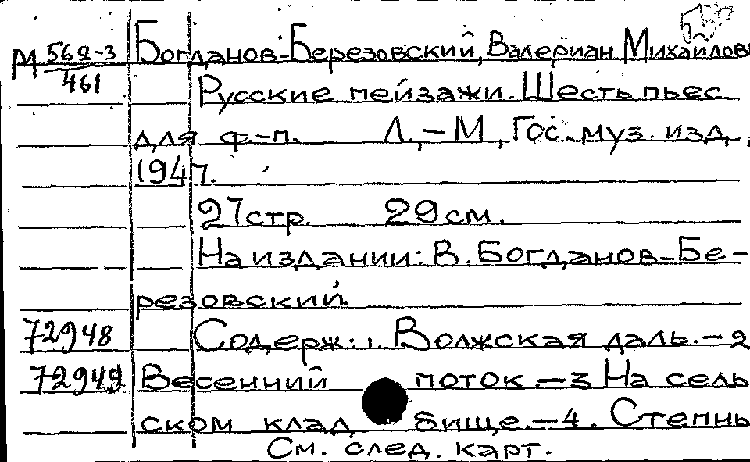 М 568-3/461 Богданов-Березовский, Валериан Михайлов
Русские пейзажи. Шесть пьес
для ф-п. Л.-М, Гос. муз. изд,
1947.
27 стр. 29 см.
На издании: В. Богданов-Бе-
резовский
72948 Содерж: 1. Волжская даль. - 2
72949 Весенний поток - 3 На сель
ском клад бище. - 4. Степнь
См. след. карт.